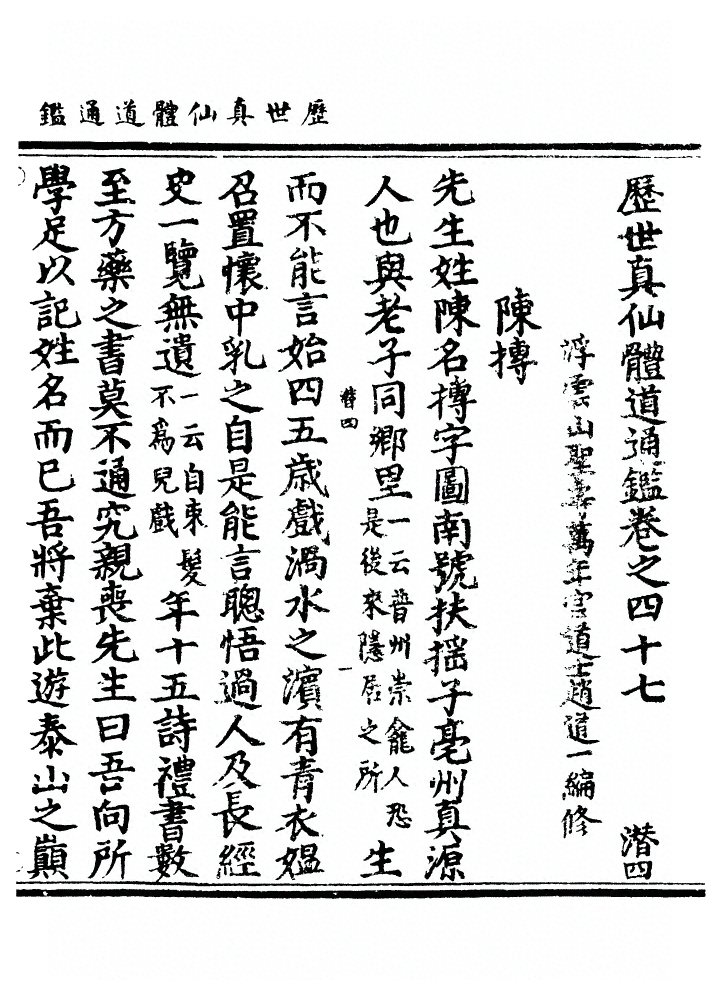 歷世真仙體道通鑑
歷世真仙體道通鑑卷之四十七 潛四
浮雲山聖壽萬年宮道士趙道一編修
陳摶
先生姓陳名摶字圖南號扶搖子亳州真源
人也與老子同鄉里一云普州崇龕人恐是後來隱居之所生
潛四 一
而不能言始四五歲戲渦水之濱有青衣媼
召置懷中乳之自是能言聰悟過人及長經
史一覽無遺一云自束髮不為兒戲年十五詩禮書數
至方藥之書莫不通究親喪先生曰吾向所
學足以記姓名而已吾將棄此遊泰山之巔